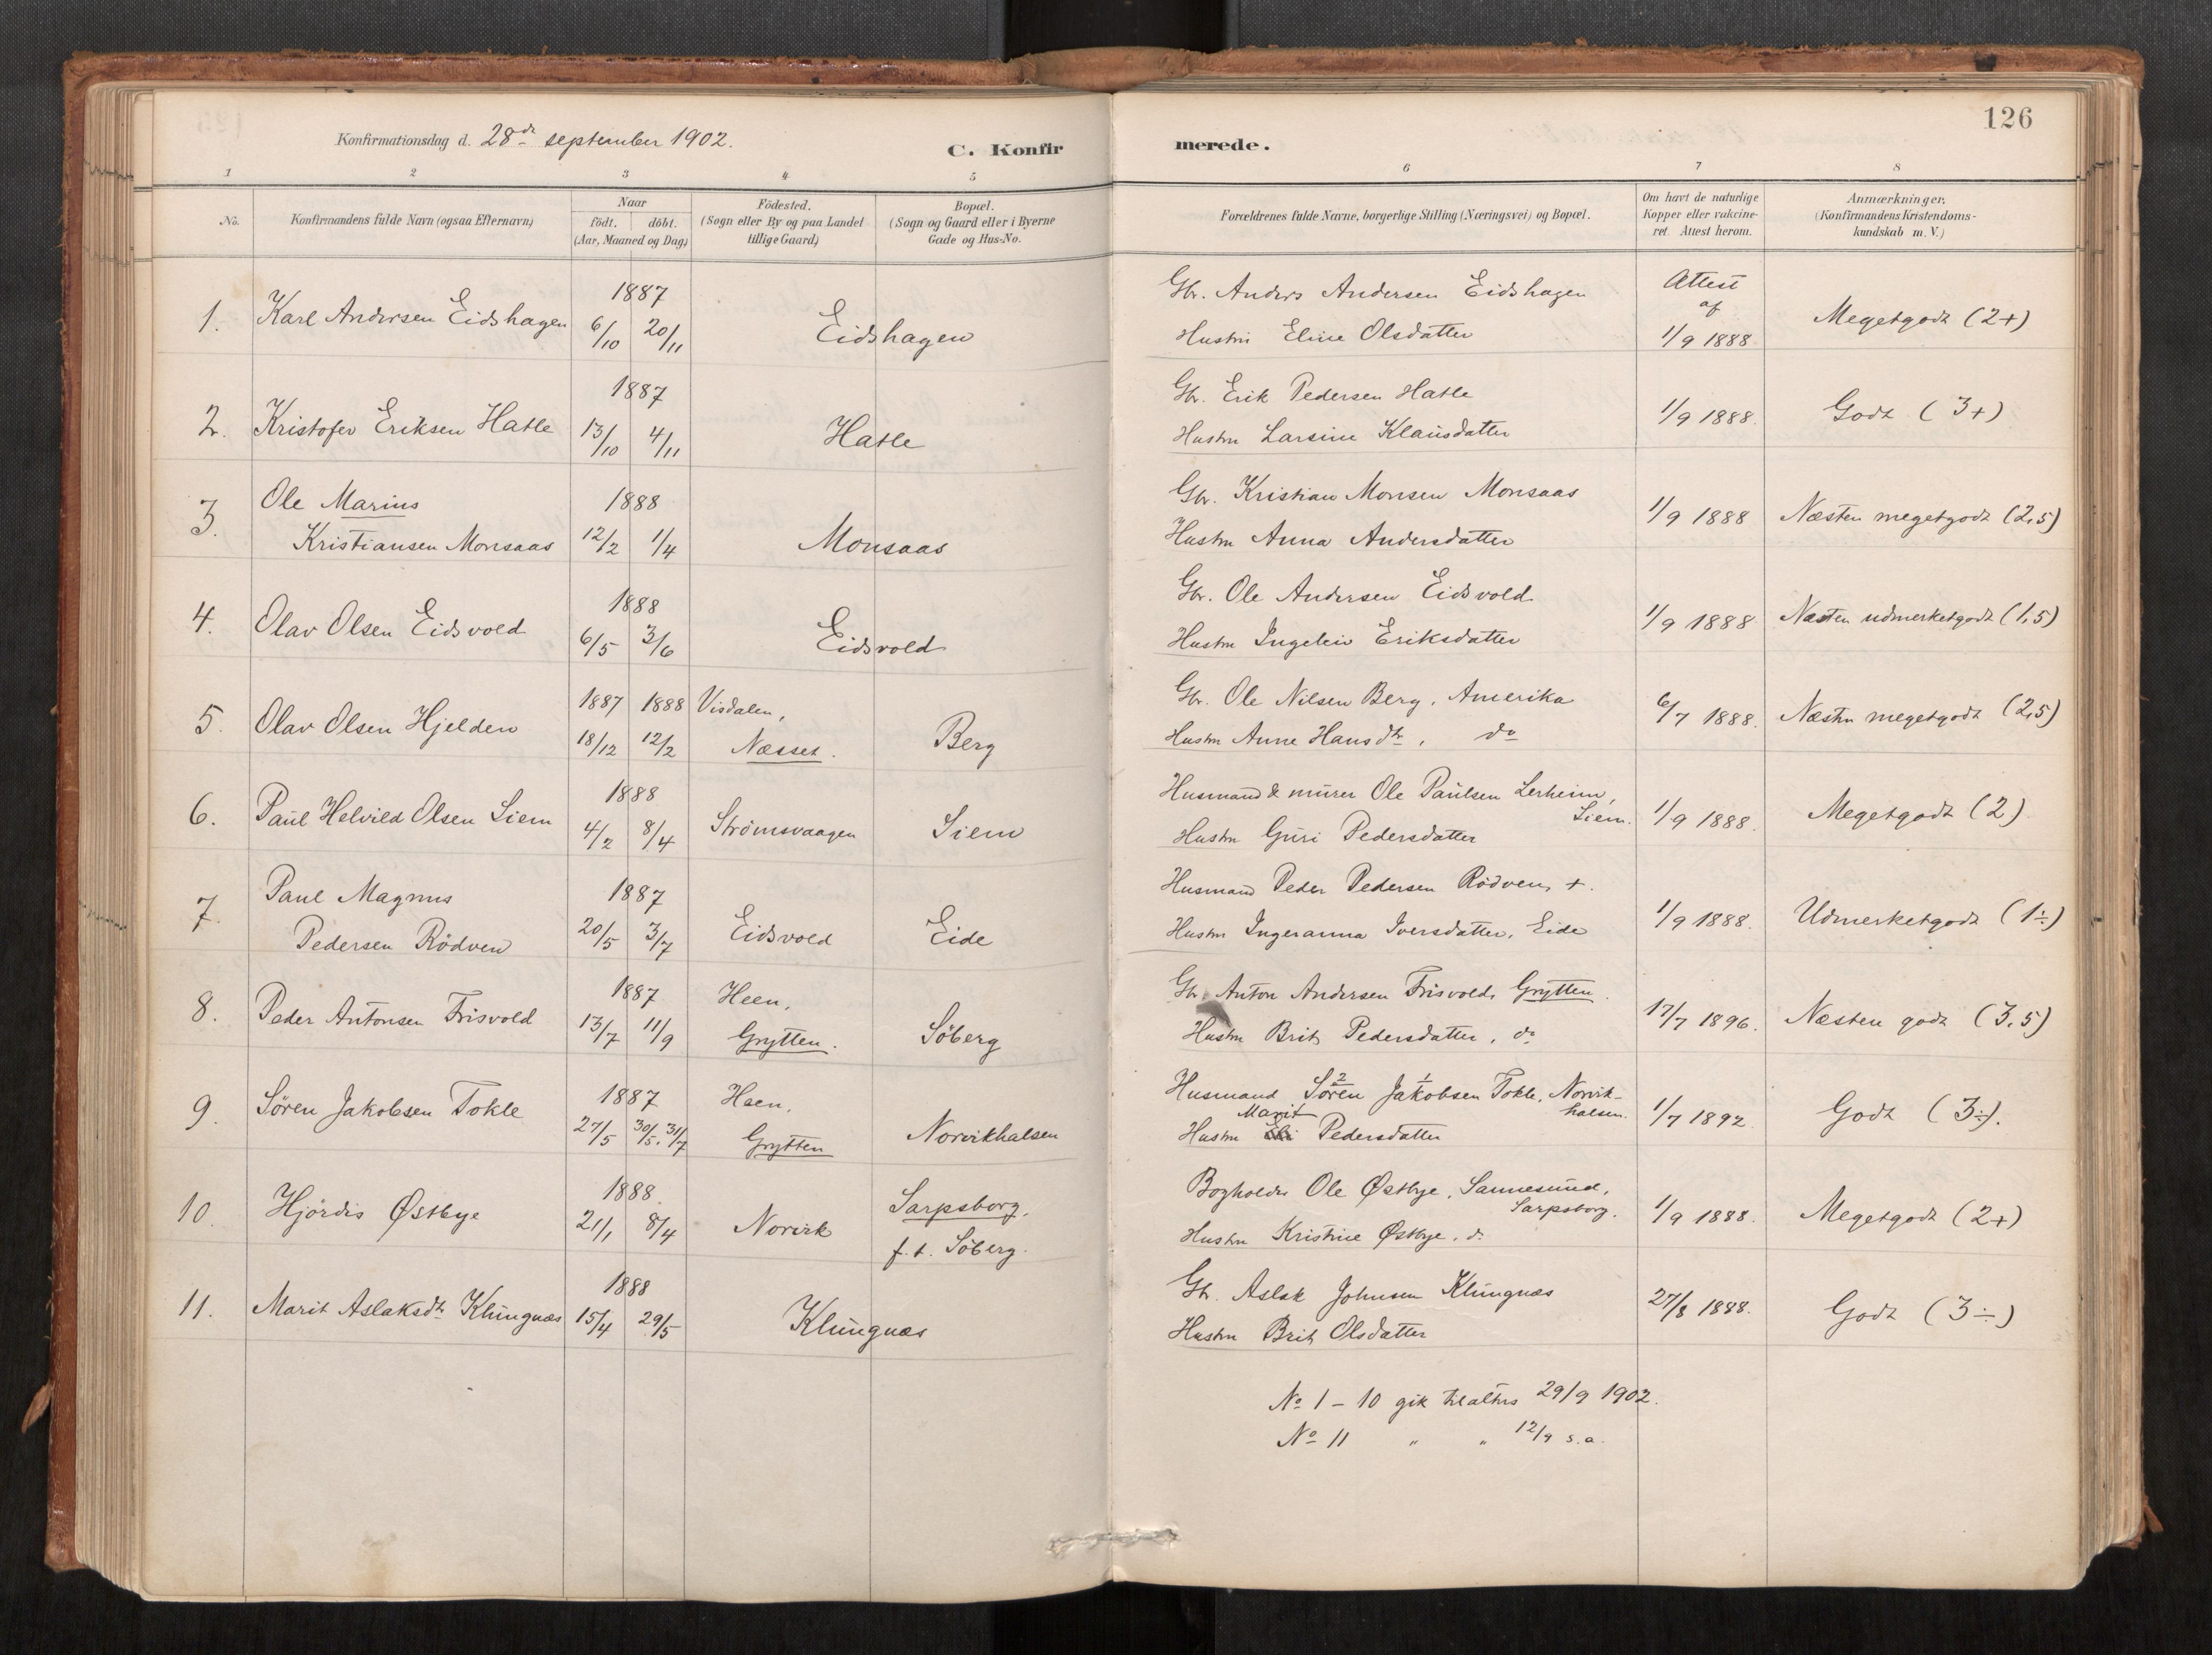 126
Konfirmationsdag d. 28de september 1902.
C. Konfirmerede.
1 2 3 4 5 6 7 8
No.
Konfirmandens fulde Navn (ogsaa Efternavn)
Naar
födt. döbt.
(Aar, Maaned og Dag)
Födested.
(Sogn eller By og paa Landet
tillige Gaard)
Bopæl.
(Sogn og Gaard eller i Byerne
Gade og Hus-No.
Forældrenes fulde Navne, borgerlige Stilling (Næringsvei) og Bopæl.
Om havt de naturlige
Kopper eller vakcine-
ret. Attest herom.
Anmærkninger.
(Konfirmandens Kristendoms-
kundskab m. V.)
1. Karl Andersen Eidshagen
1887
6/10 20/11
Eidshagen
Gbr. Anders Andersen Eidshagen
Hustru Eline Olsdatter
Attest
af
1/9 1888
Megetgodt (2+)
2. Kristofer Eriksen Hatle
1887
13/10 4/11
Hatle
Gbr. Erik Pedersen Hatle
Hustru Larsine Klausdatter
1/9 1888.
Godt (3+)
3. Ole Marius
Kristiansen Monsaas
1888
12/2 1/4
Monsaas
Gbr. Kristian Monsen Monsaas
Hustru Anna Andersdatter
1/9 1888
Næsten megetgodt (2,5)
4. Olav Olsen Eidsvold
1888
6/5 3/6
Eidsvold
Gbr. Ole Andersen Eidsvold
Hustru Ingeleiv Eriksdatter
1/9 1888
Næsten udmerketgodt (1,5)
5. Olav Olsen Hjelden
1887 1888
18/12 12/2
Visdalen,
Næsset.
Berg
Gbr. Ole Nilsen Berg, Amerika
Hustru Anne Hansdtr, do
6/7 1888.
Næsten megetgodt (2,5)
6. Paul Helvild Olsen Siem
1888
4/2 8/4
Strömsvaagen
Siem
Husmand & murer Ole Paulsen Lerheim,
Siem.
Hustru Guri Pedersdatter
1/9 1888.
Megetgodt (2)
7. Paul Magnus
Pedersen Rödven
1887
20/5 3/7
Eidsvold
Eide
Husmand Peder Pedersen Rödven, +.
Hustru Ingeranna Iversdatter, Eide
1/9 1888.
Udmerketgodt (1÷)
8. Peder Antonsen Frisvold
1887
13/7 11/9
Heen,
Grytten.
Söberg
Gbr. Anton Andersen Frisvold, Grytten.
Hustru Brit Pedersdatter, do
17/7 1896.
Næsten godt (3,5)
9. Sören Jakobsen Tokle
1887
27/5 30/5. 31/7
Heen,
Grytten
Norvikhalsen
2 1
Husmand Sören Jakobsen Tokle, Norvik-
halsen.
Marit
Hustru Eli Pedersdatter
1/7 1892
Godt (3÷).
10. Hjördis Østbye
1888.
21/1 8/4
Norvik
Sarpsborg.
f. t. Söberg.
Bogholder Ole Østbye, Sannesund,
Sarpsborg.
Hustru Kristine Østbye, do
1/9 1888.
Megetgodt (2+)
11. Marit Aslaksdtr Klungnæs
1888
15/4 29/5
Klungnæs
Gbr. Aslak Johnsen Klungnæs
Hustru Brit Olsdatter
27/8 1888.
Godt (3÷)
No 1 - 10 gik tilalters 29/9 1902.
No 11 " " 12/9 s. a.